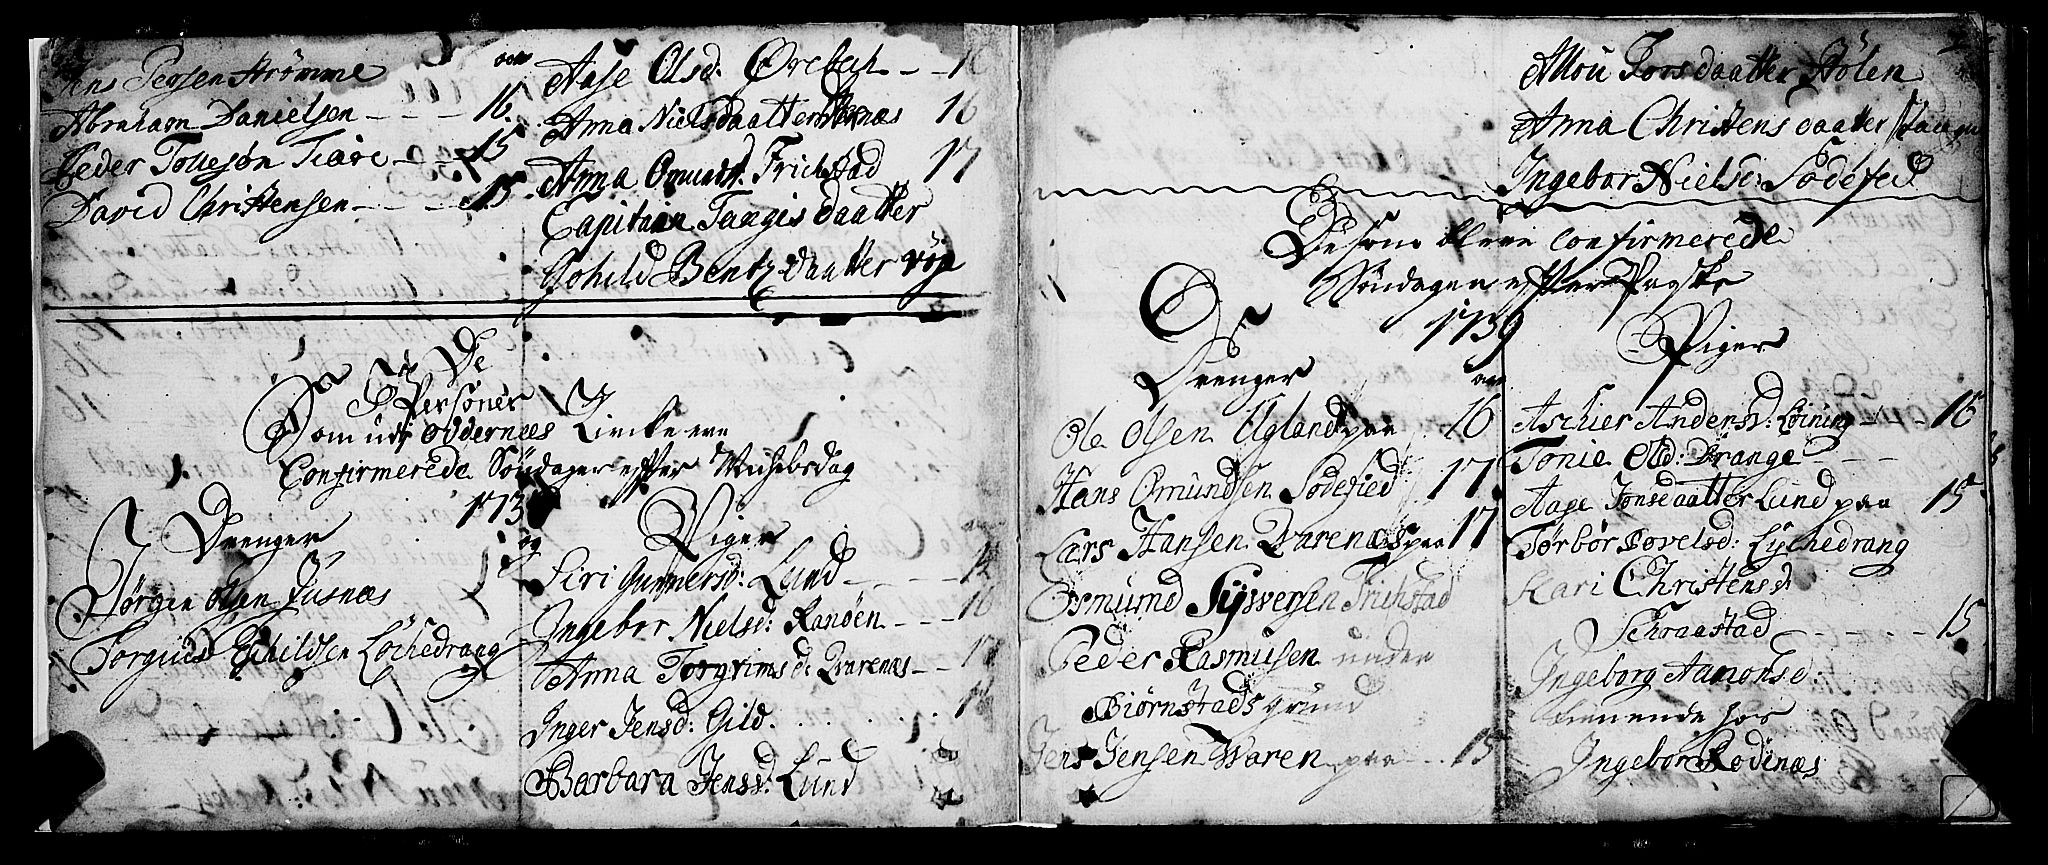 Persen Strømme
Abraham Danielsen 16
Peder Tollesøn 15
David Christensen 15
Aase Olsd: Ørebech 16
Anna Nielsdaatter 16
Anna Omundsd. Frichstad 17
Capitain Taagis daatter
Gohild Bentz daatter Røje
De
Personer
Som udj Oddernees Kircke ere
Confirmerede Søndagen effter Michelsdag
173
Drenger
og
Piger
Jørgen Olsen Fusnæs
Torgius Eschildsen Løchedrang
Siri Gunnersd: Lund
Ingebor Nielsd: Randen
Anna Torgrimsd: Qvarenæs
Inger Jensd: Gild
Barbara Jensd: Lund
Jorsdaatter Stölen
Anna Christens daatter
Ingebor Nielsd: Södefied
De som bleve Confirmerede
Söndagen effter Paaske
1739
Drenger
Ole Olsen Ugland paa 16
Hans Omundsen Sodefied 17
Lars Hansen Qvarenæs paa 17
Osmund Syversen Frichstad
Peder Rasmusen under
Biørnstads grund
Jens Jensen Waren paa 15
Piger
Aschier Andersd: 16
Tonie Old: Drange
Aase Jonsdaatter Lund paa 15
Torbör Povelsd: Lychedrang
Kari Christensd
Schraastad 15
Ingeborg Aamonsd:
tienende hos
Ingebor Rodenæs